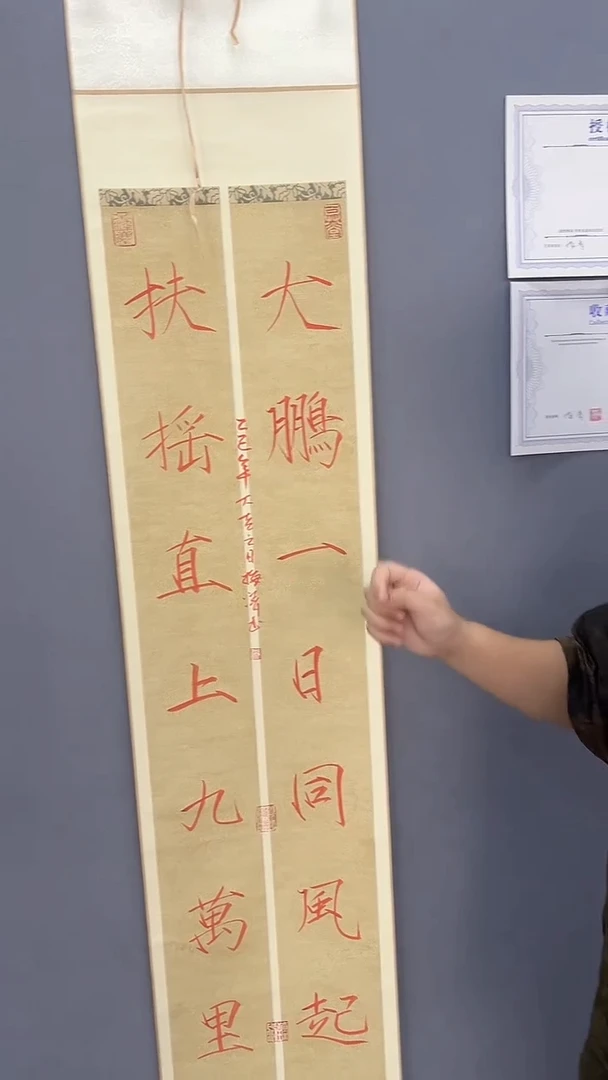 大鵬一日同風起
扶摇直上九萬里
乙巳年大吉之日
授
收